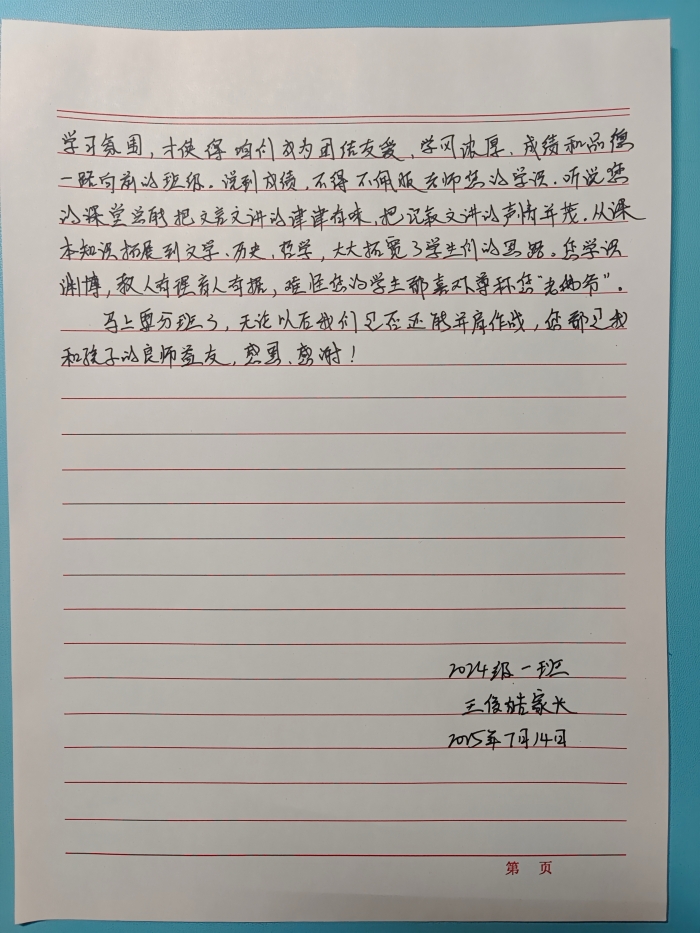 学习氛围，才使得咱们成为团结友爱、学风浓厚、成绩和品德
一路向前的班级。说到成绩，不得不佩服老师您的学识。听说您
的课堂总能把文言文讲的津津有味，把记叙文讲的声情并茂。从课
本知识拓展到文学、历史、哲学，大大拓宽了学生们的思路。您学识
渊博，教人有理育人有据，难怪您的学生都喜欢尊称您“老佛爷”。
马上要分班了，无论以后我们是否还能并肩作战，您都是我
和孩子的良师益友，感恩、感谢！
2024级一班
王俊喆家长
2025年7月14日
第 页